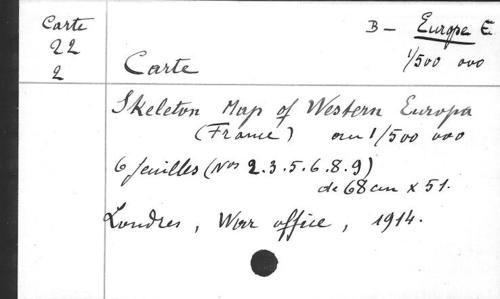 Carte
22
2
B - Europe E
1/500 000
Carte
Skeleton Map of Western Europa
(France) au 1/500 000
6 feuilles (Nos 2.3.5.6.8.9)
de 68 cm x 51.
Londres, War office, 1914.